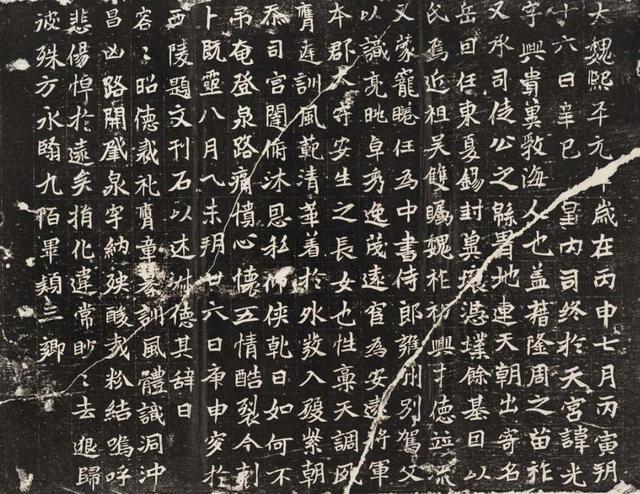 大魏熙平元年歲在丙申七月丙寅朔
十六日辛巳皇內司終於天宮諱光
字興貴冀敦海人也蓋藉隆周之苗祚
又承司徒公之緜胄地連天朝出寄名
岳曰任東夏錫封冀壤憑餘基曰以
氏焉近祖吴雙矚魏祚初興才德並流
又蒙寵任為中書侍郎雍州別駕父
以識亮眺卓秀逸茂遠官為安遠將軍
本郡太守安生之長女也性稟天調夙
膺廷訓風範清華着於外發入紫朝
忝司宮闈備沐恩私仰俠乾日如何不
弔奄登泉路痛憤心懷五情酷裂今剋
卜既靈八月乙未朔廿六日庚申窆於
西陵題文刊石以述淋德其辭曰
容〻昭德裁礼膺章訓風體識洞沖
昌凶路開泉宇納殃酸或粉結嗚呼
悲傷悼於遠矣捐化違常眇〻去退歸
彼殊方永翳九陌畢頹三卿